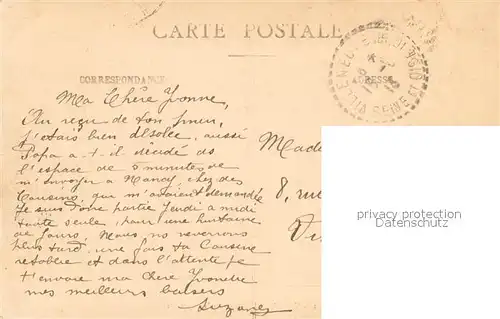 CARTE POSTALE
CORRESPONDANCE
ADRESSE
Ma Chère Yvonne,
Au reçu de ton pneu,
j'étais bien désolée, aussi
Papa a-t-il décidé ds
l'espace de 5 minutes de
m'envoyer à Nancy chez des
Cousins, que m'avaient demandée
Je suis donc partie Jeudi à midi
toute seule, pour une huitaine
de jours. Nous, ns reverrons
plus tard, une fois ta Cousine
rétablie et dans l'attente je
t'envoie ma chère Yvonette
mes meilleurs baisers
Suzanne
Made
8, rue
privacy protection
Datenschutz
SEINE ET OISE